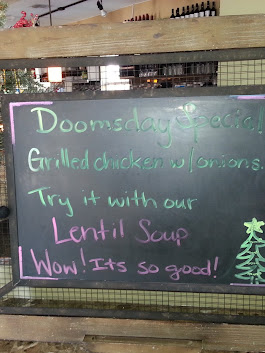 Doomsday Special
Grilled chicken w/onions.
Try it with our
Lentil Soup
Wow! Its so good!